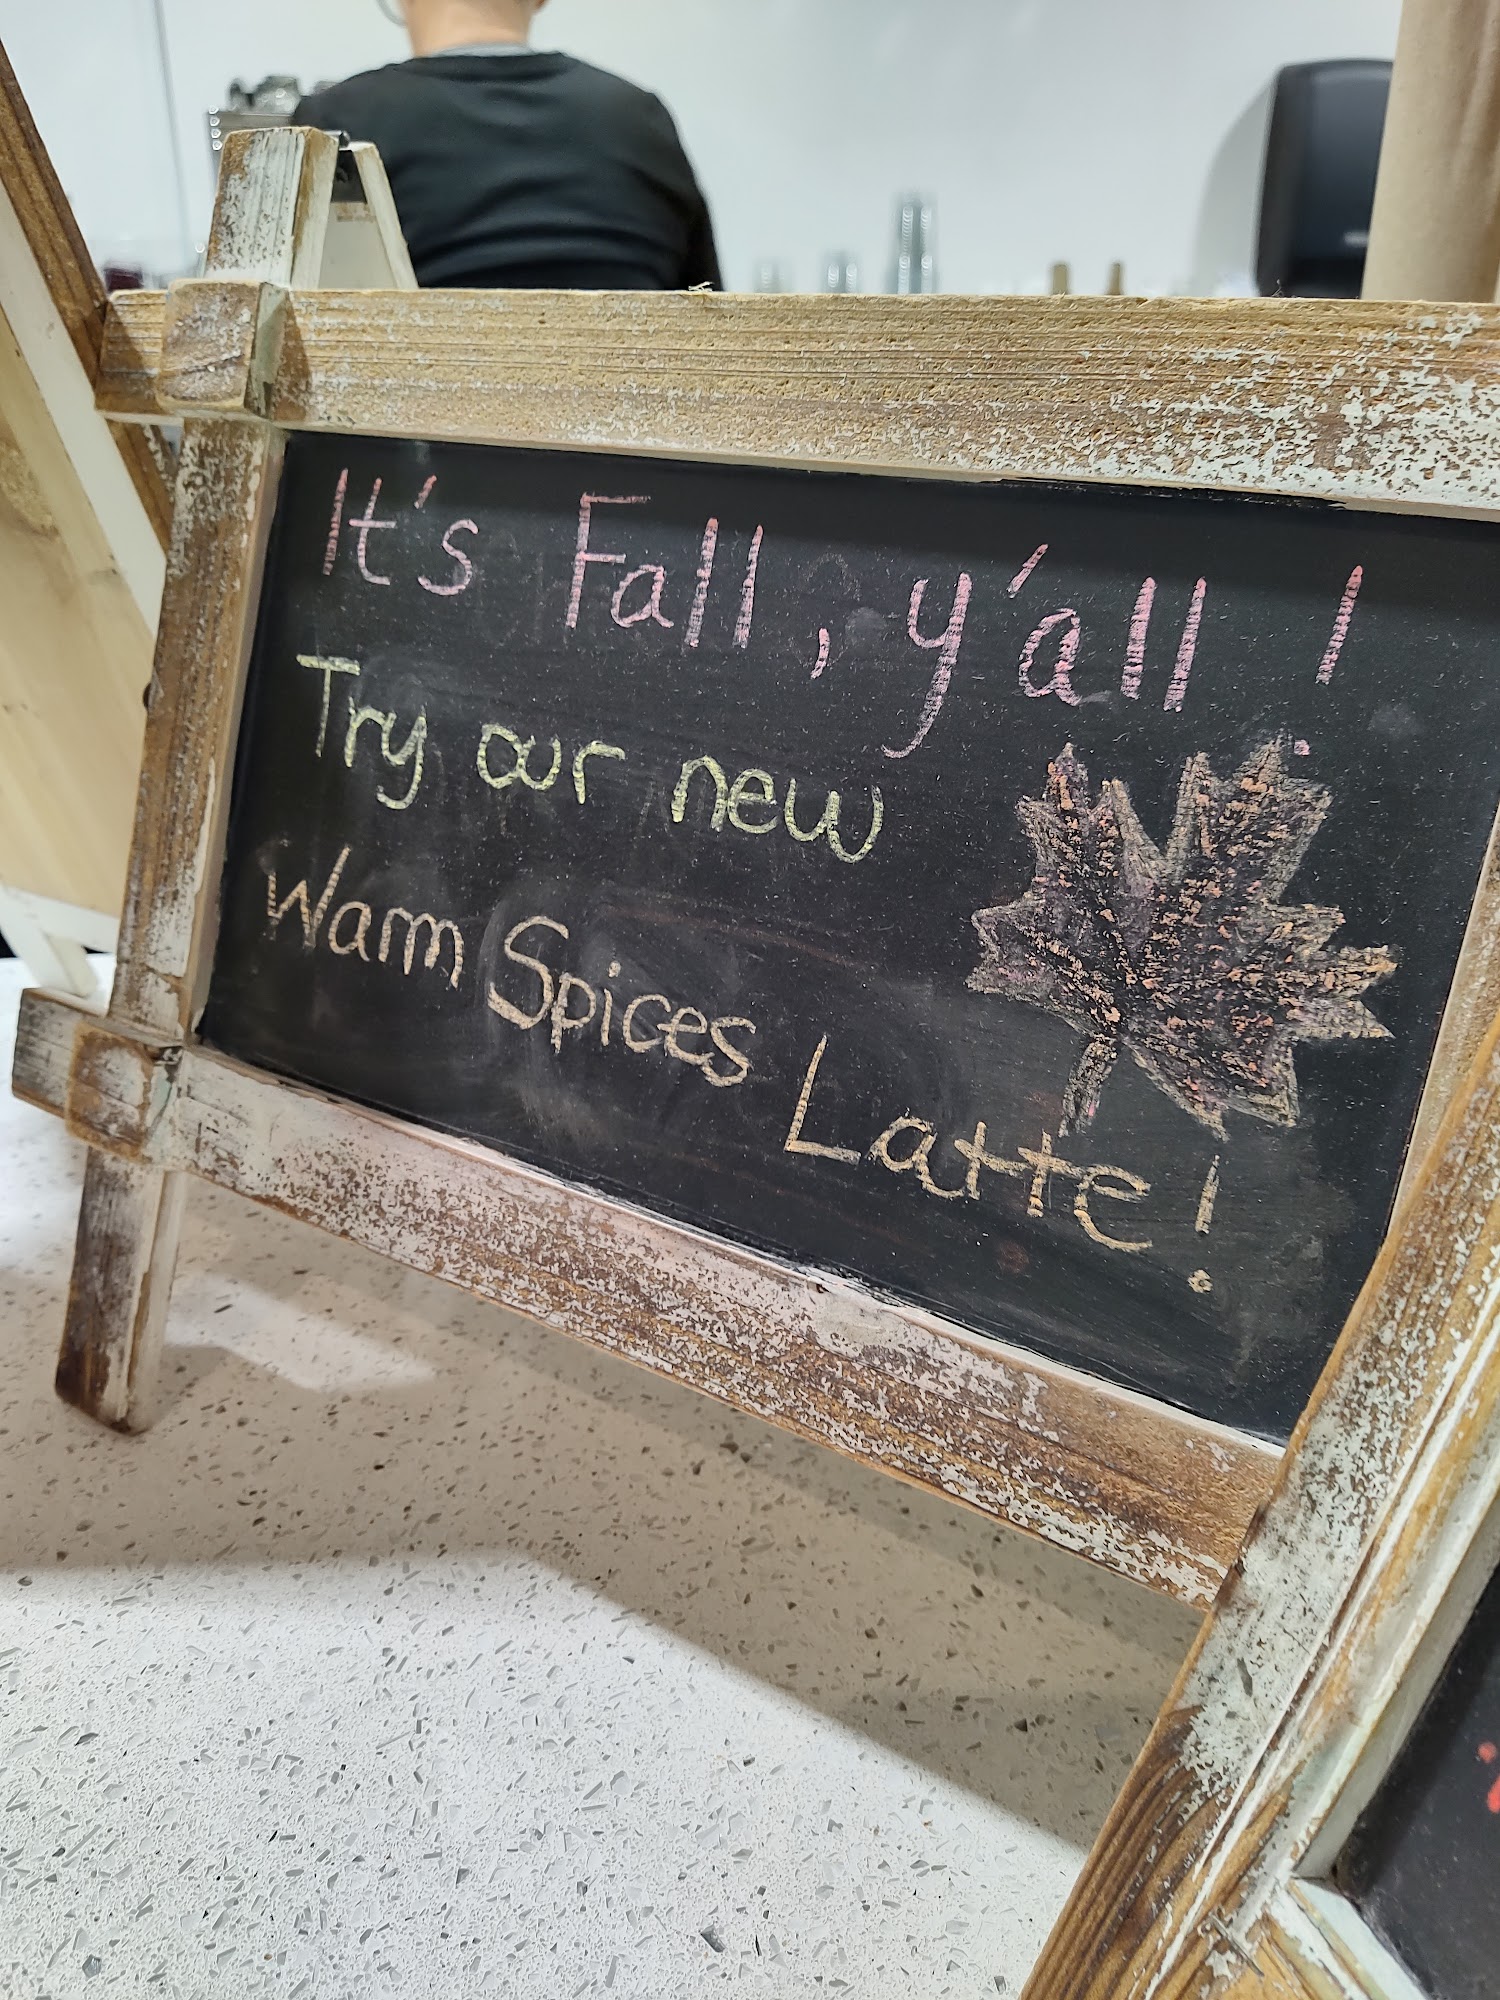 It's Fall, y'all!
Try our new
Warm Spices Latte!